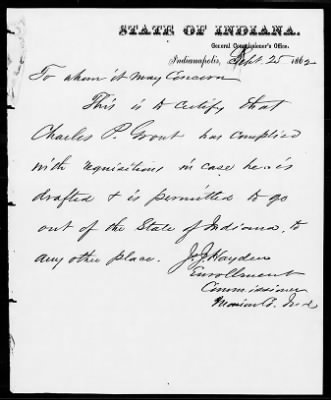 STATE OF INDIANA.
General Commissioner's Office.
Indianapolis, Sept. 25 1862
To whom it may Concern
This is to certify that
Charles P. Grout has complied
with requisitions in case he is
drafted & is permitted to go
out of the State of Indiana, to
any other place. J. J. Hayden
Enrollment
Commissioner
Marion Co. Ind